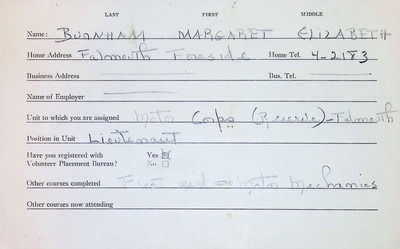 LAST FIRST MIDDLE
Name: BURNHAM MARGARET ELIZABETH
Home Address Falmouth Foreside Home Tel. 4-2183
Business Address Bus. Tel.
Name of Employer
Unit to which you are assigned Motor Corps (Reserve)-Falmouth
Position in Unit Lieutenant
Have you registered with Yes
Volunteer Placement Bureau? No
Other courses completed First aid - Motor Mechanics
Other courses now attending